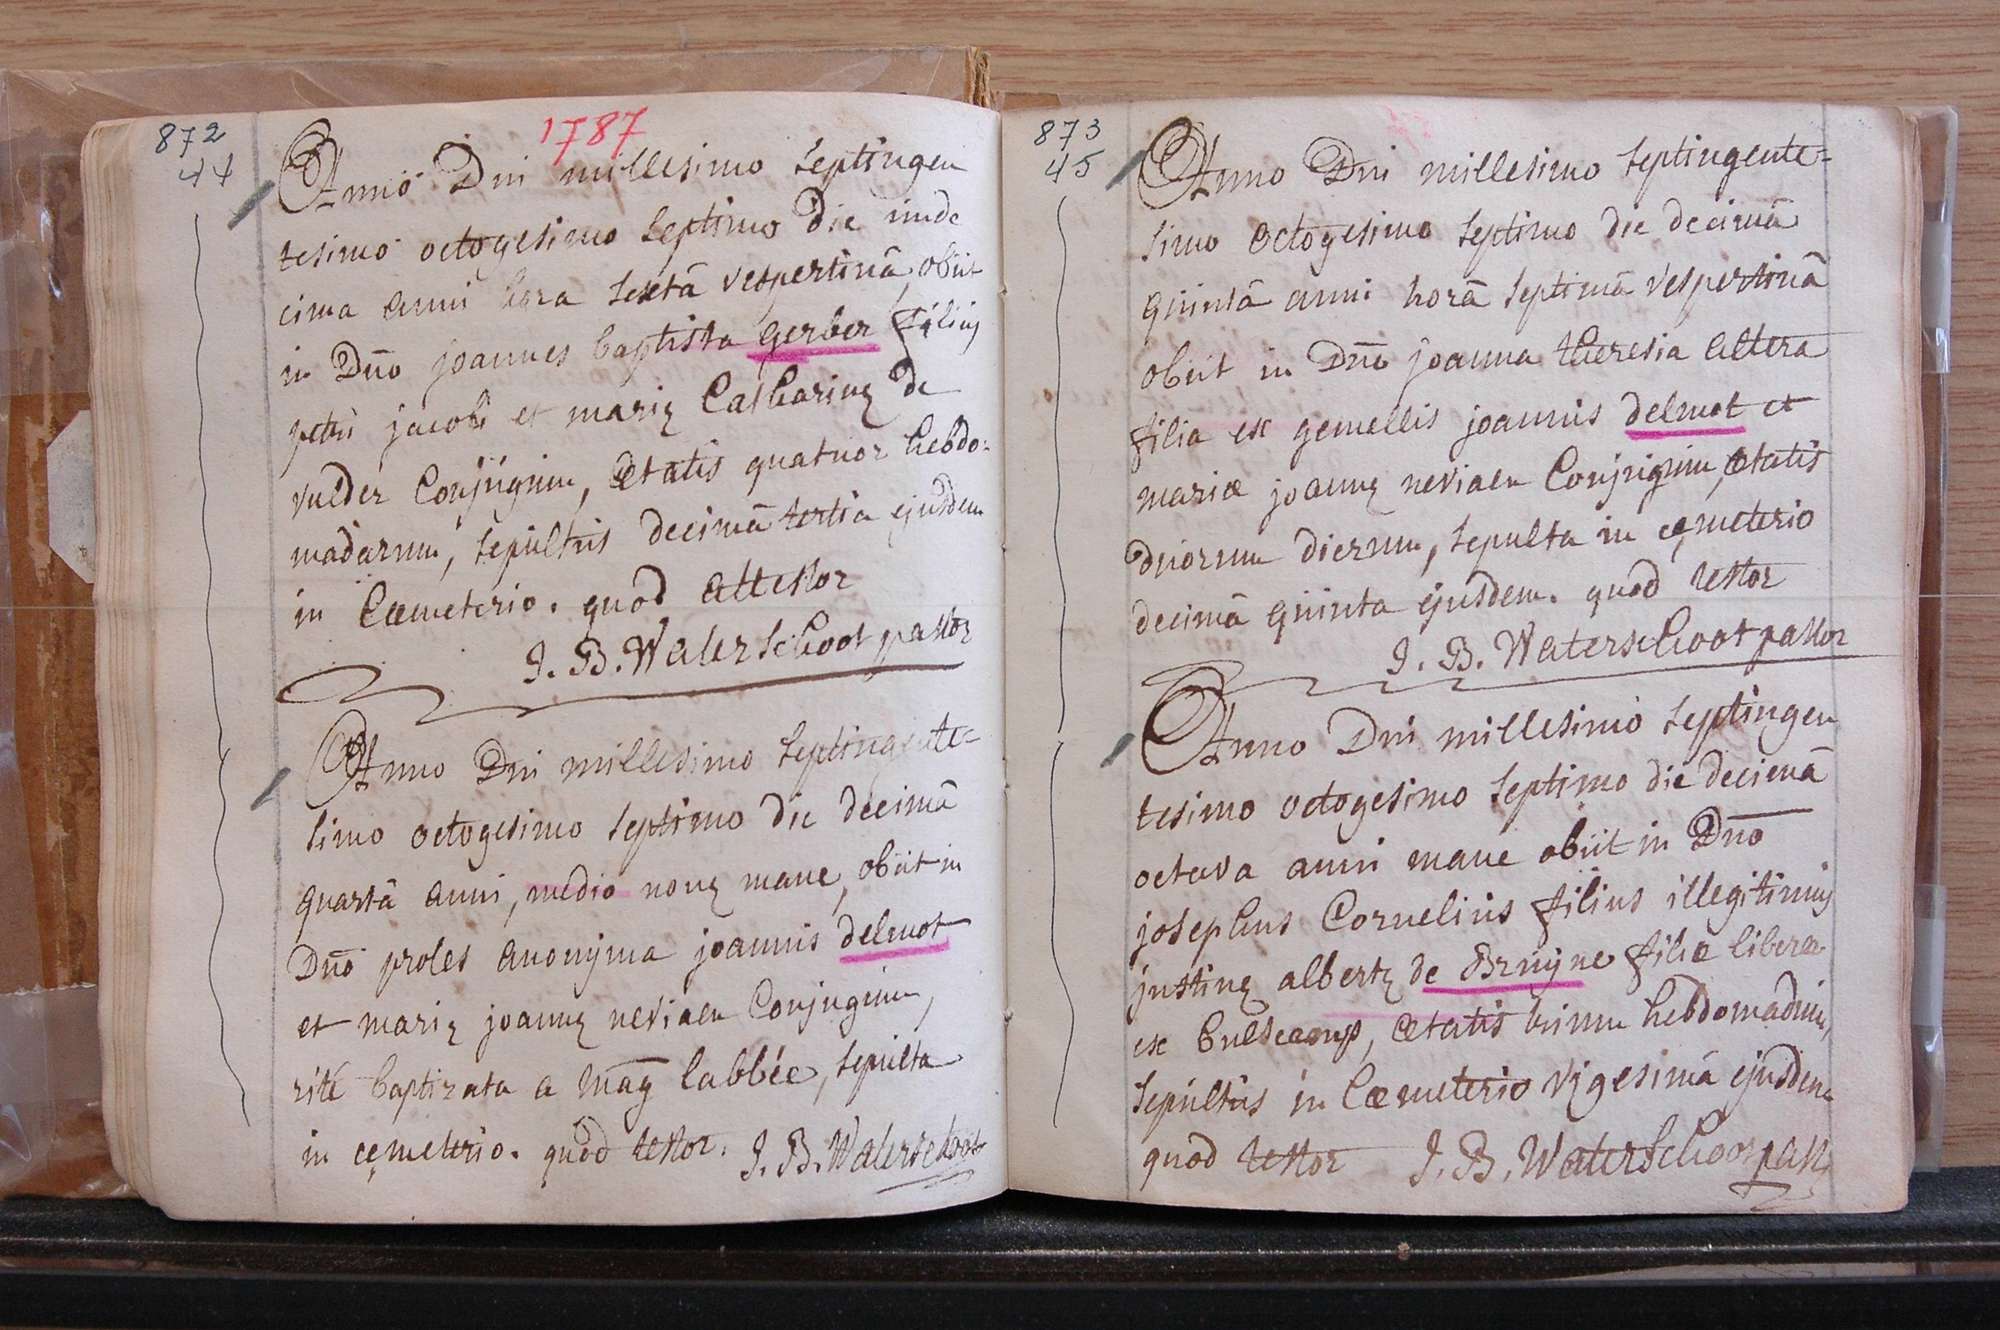 872
44
1787
Anno Dni millesimo septingen
tesimo octogesimo septimo die unde
cima anni hora sextâ vespertinâ obiit
in Dno joannes baptista gerber filius
petri jacobi et mariæ Catharinæ de
vulder Conjugum, ætatis quatuor hebdo-
madarum, sepultus decimâ tertia ejusdem
in Cæmeterio. quod attestor
J. B. Waterschoot pastor
Anno Dni millesimo septingente-
simo octogesimo septimo die decimâ
quartâ anni, medio nonæ mane, obiit in
Dno proles anonyma joannis delmot
et mariæ joannæ neviaen Conjugum,
rite baptizata a Mag labbée, sepulta
in cæmeterio. quod testor. J. B. Waterschoot
873
45
Anno Dni millesimo septingente-
simo octogesimo septimo die decimâ
quintâ anni horâ septimâ vespertinâ
obiit in Dno joanna theresia altera
filia ex gemellis joannis delmot et
mariæ joannæ neviaen Conjugum, ætatis
duorum dierum, sepulta in cæmeterio
decimâ quinta ejusdem. quod testor
J. B. Waterschoot pastor
Anno Dni millesimo septingen
tesimo octogesimo septimo die decimâ
octava anni mane obiit in Dno
josephus Cornelius filius illegitimus
justinæ albertæ de Bruyne filiæ liberæ
ex bulscamp, ætatis trium hebdomadum,
sepultus in Cæmeterio vigesimâ ejusdem
quod testor J. B. Waterschoot past